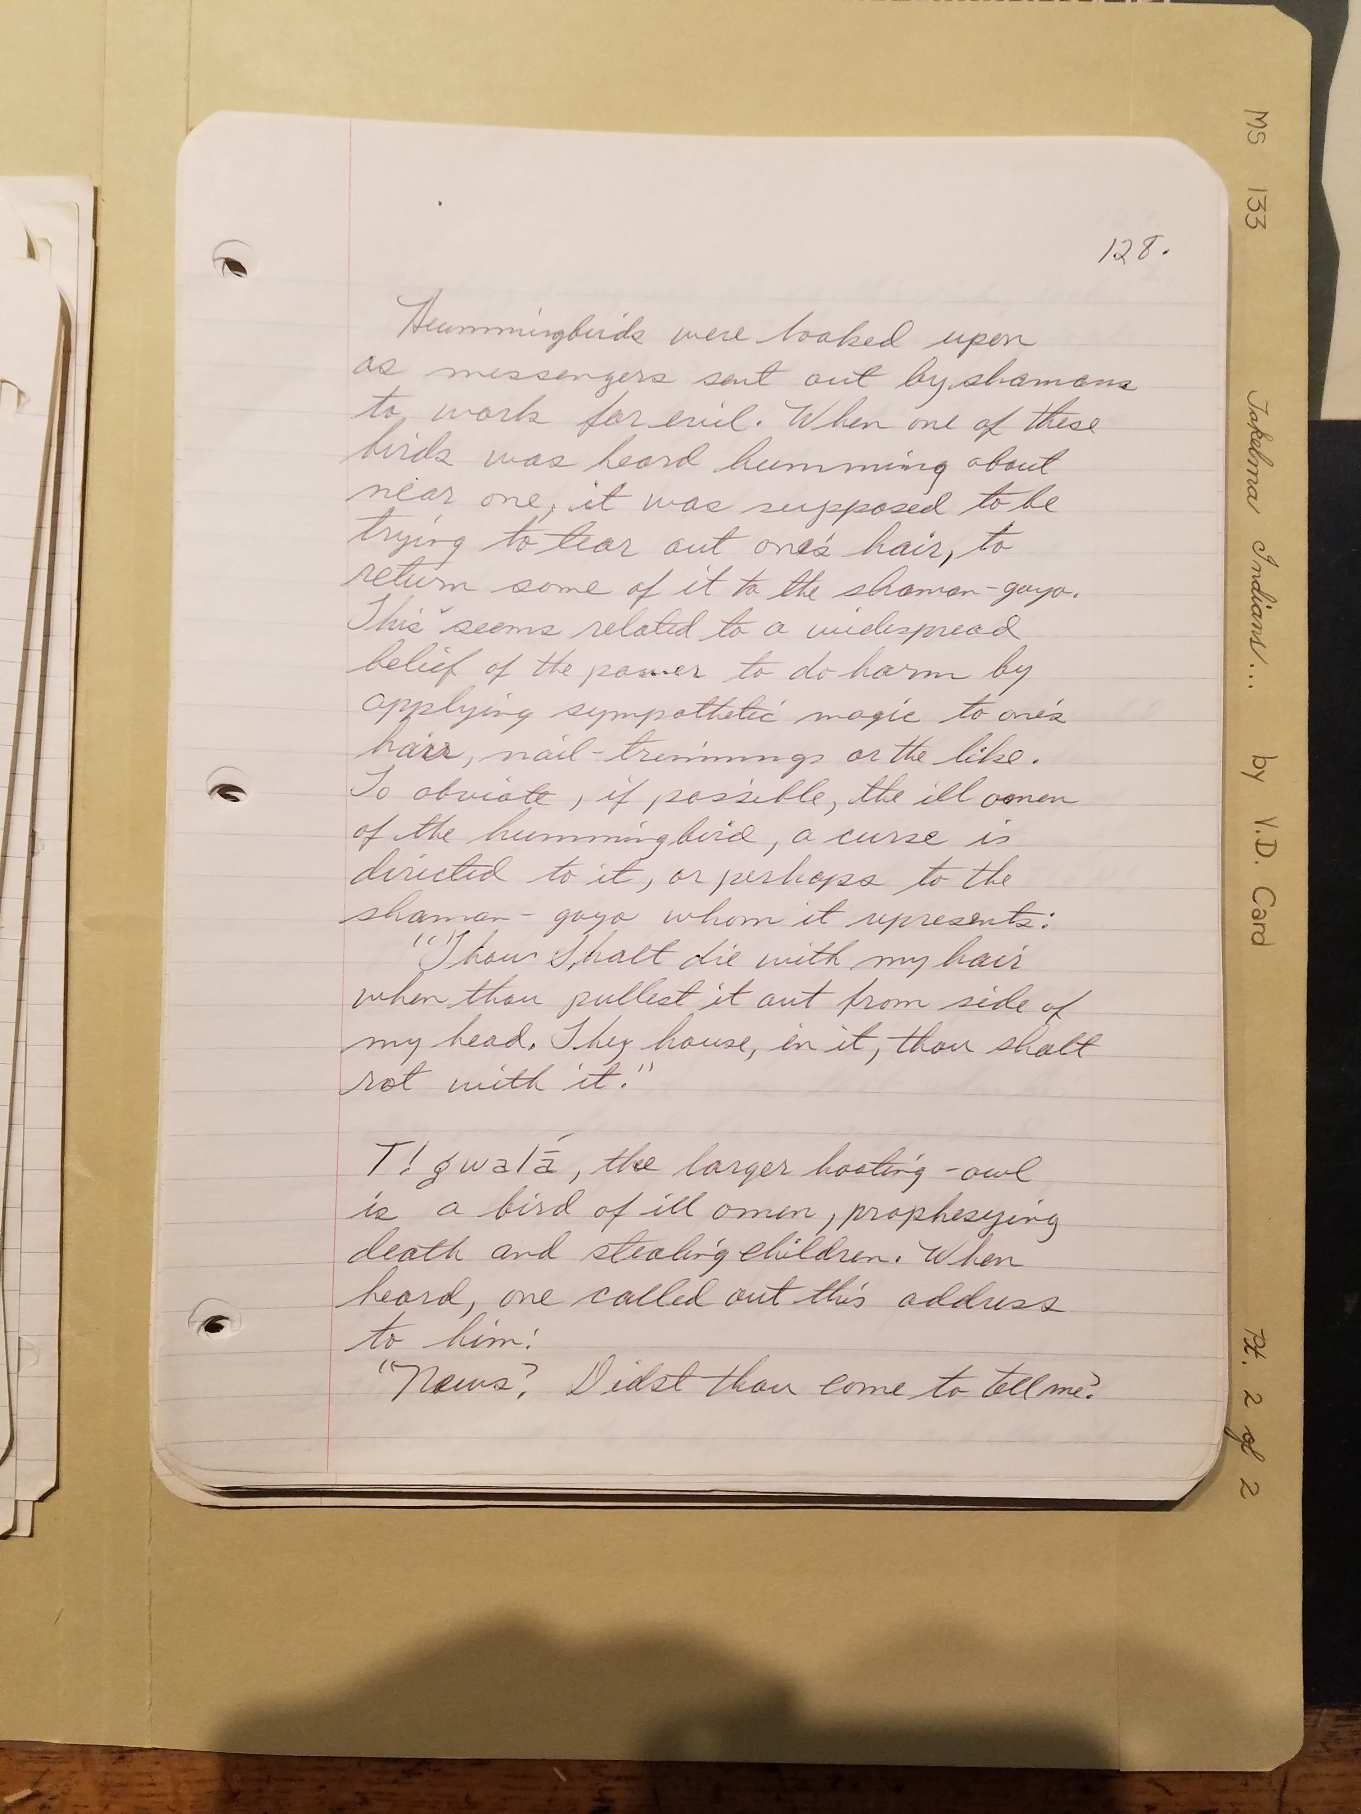 128.
Hummingbirds were looked upon
as messengers sent out by shamans
to work for evil. When one of these
birds was heard humming about
near one, it was supposed to be
trying to tear out one's hair, to
return some of it to the shaman-goyo.
This seems related to a widespread
belief of the power to do harm by
applying sympathetic magic to one's
hair, nail-trimmings or the like.
To obviate, if possible, the ill omen
of the hummingbird, a curse is
directed to it, or perhaps to the
shaman-goyo whom it represents:
"Thou shalt die with my hair
when thou pullest it out from side of
my head. Thy house, in it, thou shalt
rot with it."
T!gwalā́, the larger hooting-owl
is a bird of ill omen, prophesying
death and stealing children. When
heard, one called out this address
to him:
"News? Didst thou come to tell me?
MS 133 Takelma Indians... by V.D. Card Pt. 2 of 2